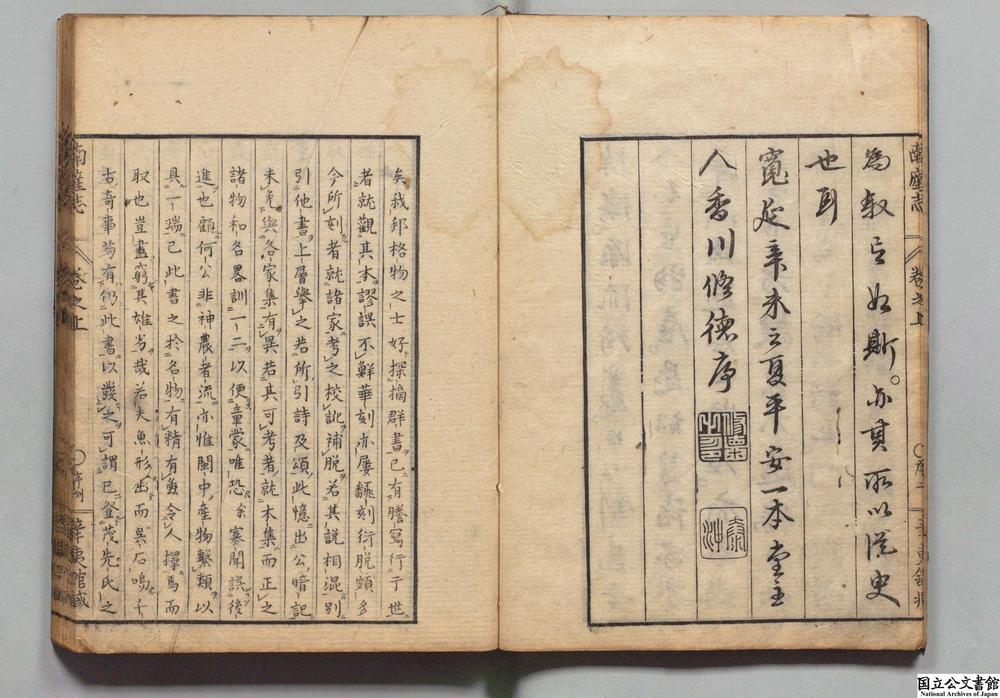 為叙言如斯。亦其所以從史
也耳
寛延辛未之夏平安一本堂主
人香川脩德序
南產志
卷之上
矣我邦格物之士好探摘群書已有謄寫行于世
者就觀其本謬誤不鮮華刻亦屢飜刻衍脫頗多
今所刻者就諸家考之校訛補脫若其說相混別
引他書上層舉之若所引詩及頌此憶出公暗記
未免與各家集有異若其可考者就本集而正之
諸物和名畧訓一二以便童蒙唯恐余寡聞誤後
進也顧何公非神農者流亦惟閩中產物繫類以
具一端已此書之於名物有精有麁令人擇焉而
取也豈盡窮其雄劣哉若夫魚形出而異石鳴千
古奇事為有仍此書以發之可謂已登茂先氏之
南產志
卷之上
國立公文書館
National Archives of Japan